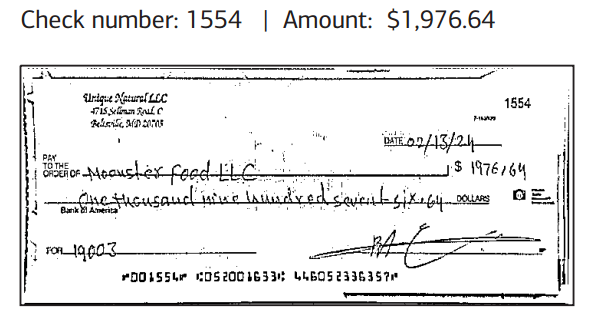 Check number: 1554 | Amount: $1,976.64
Unique Natural LLC
4715 Sellman Road, C
Beltsville, MD 20705
1554
DATE 02/13/24
PAY
TO THE
ORDER OF Moonster Food LLC $ 1976,64
One thousand nine hundred sevent six,64 DOLLARS
Bank of America
FOR 19003
⑈001554⑈ ⑆052001633⑆ 446052336357⑈